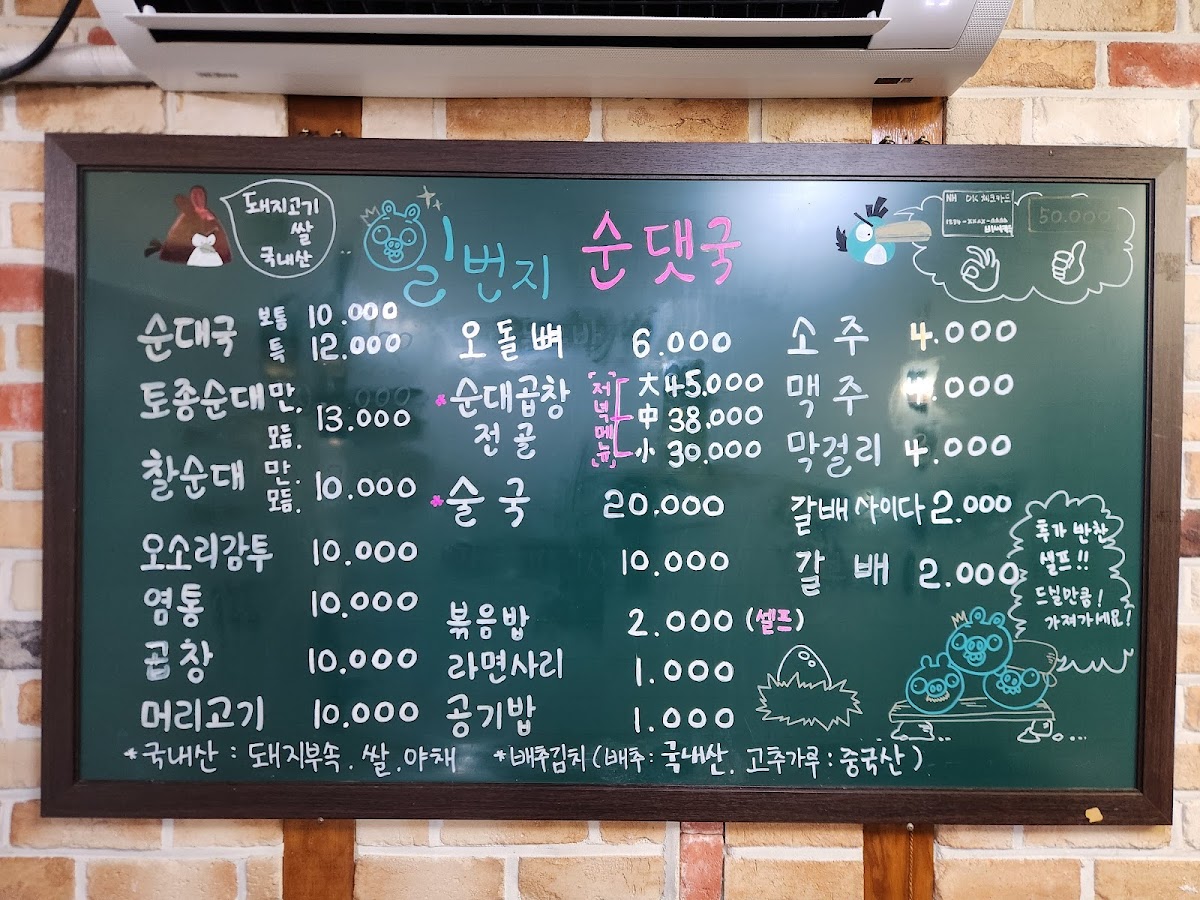 돼지고기
쌀
국내산
일번지 순댓국
NH OK 체크카드
50.000
순대국 보통 10.000
특 12.000
토종순대 만. 모듬. 13.000
찰순대 만. 모듬. 10.000
오소리감투 10.000
염통 10.000
곱창 10.000
머리고기 10.000
오돌뼈 6.000
*순대곱창전골 [저녁메뉴] 大 45.000
中 38.000
小 30.000
*술국 20.000
10.000
볶음밥 2.000 (셀프)
라면사리 1.000
공기밥 1.000
소주 4.000
맥주 4.000
막걸리 4.000
갈배사이다 2.000
갈배 2.000
추가 반찬
셀프!!
드실만큼!
가져가세요!
*국내산 : 돼지부속. 쌀. 야채 *배추김치 (배추 : 국내산. 고추가루 : 중국산)